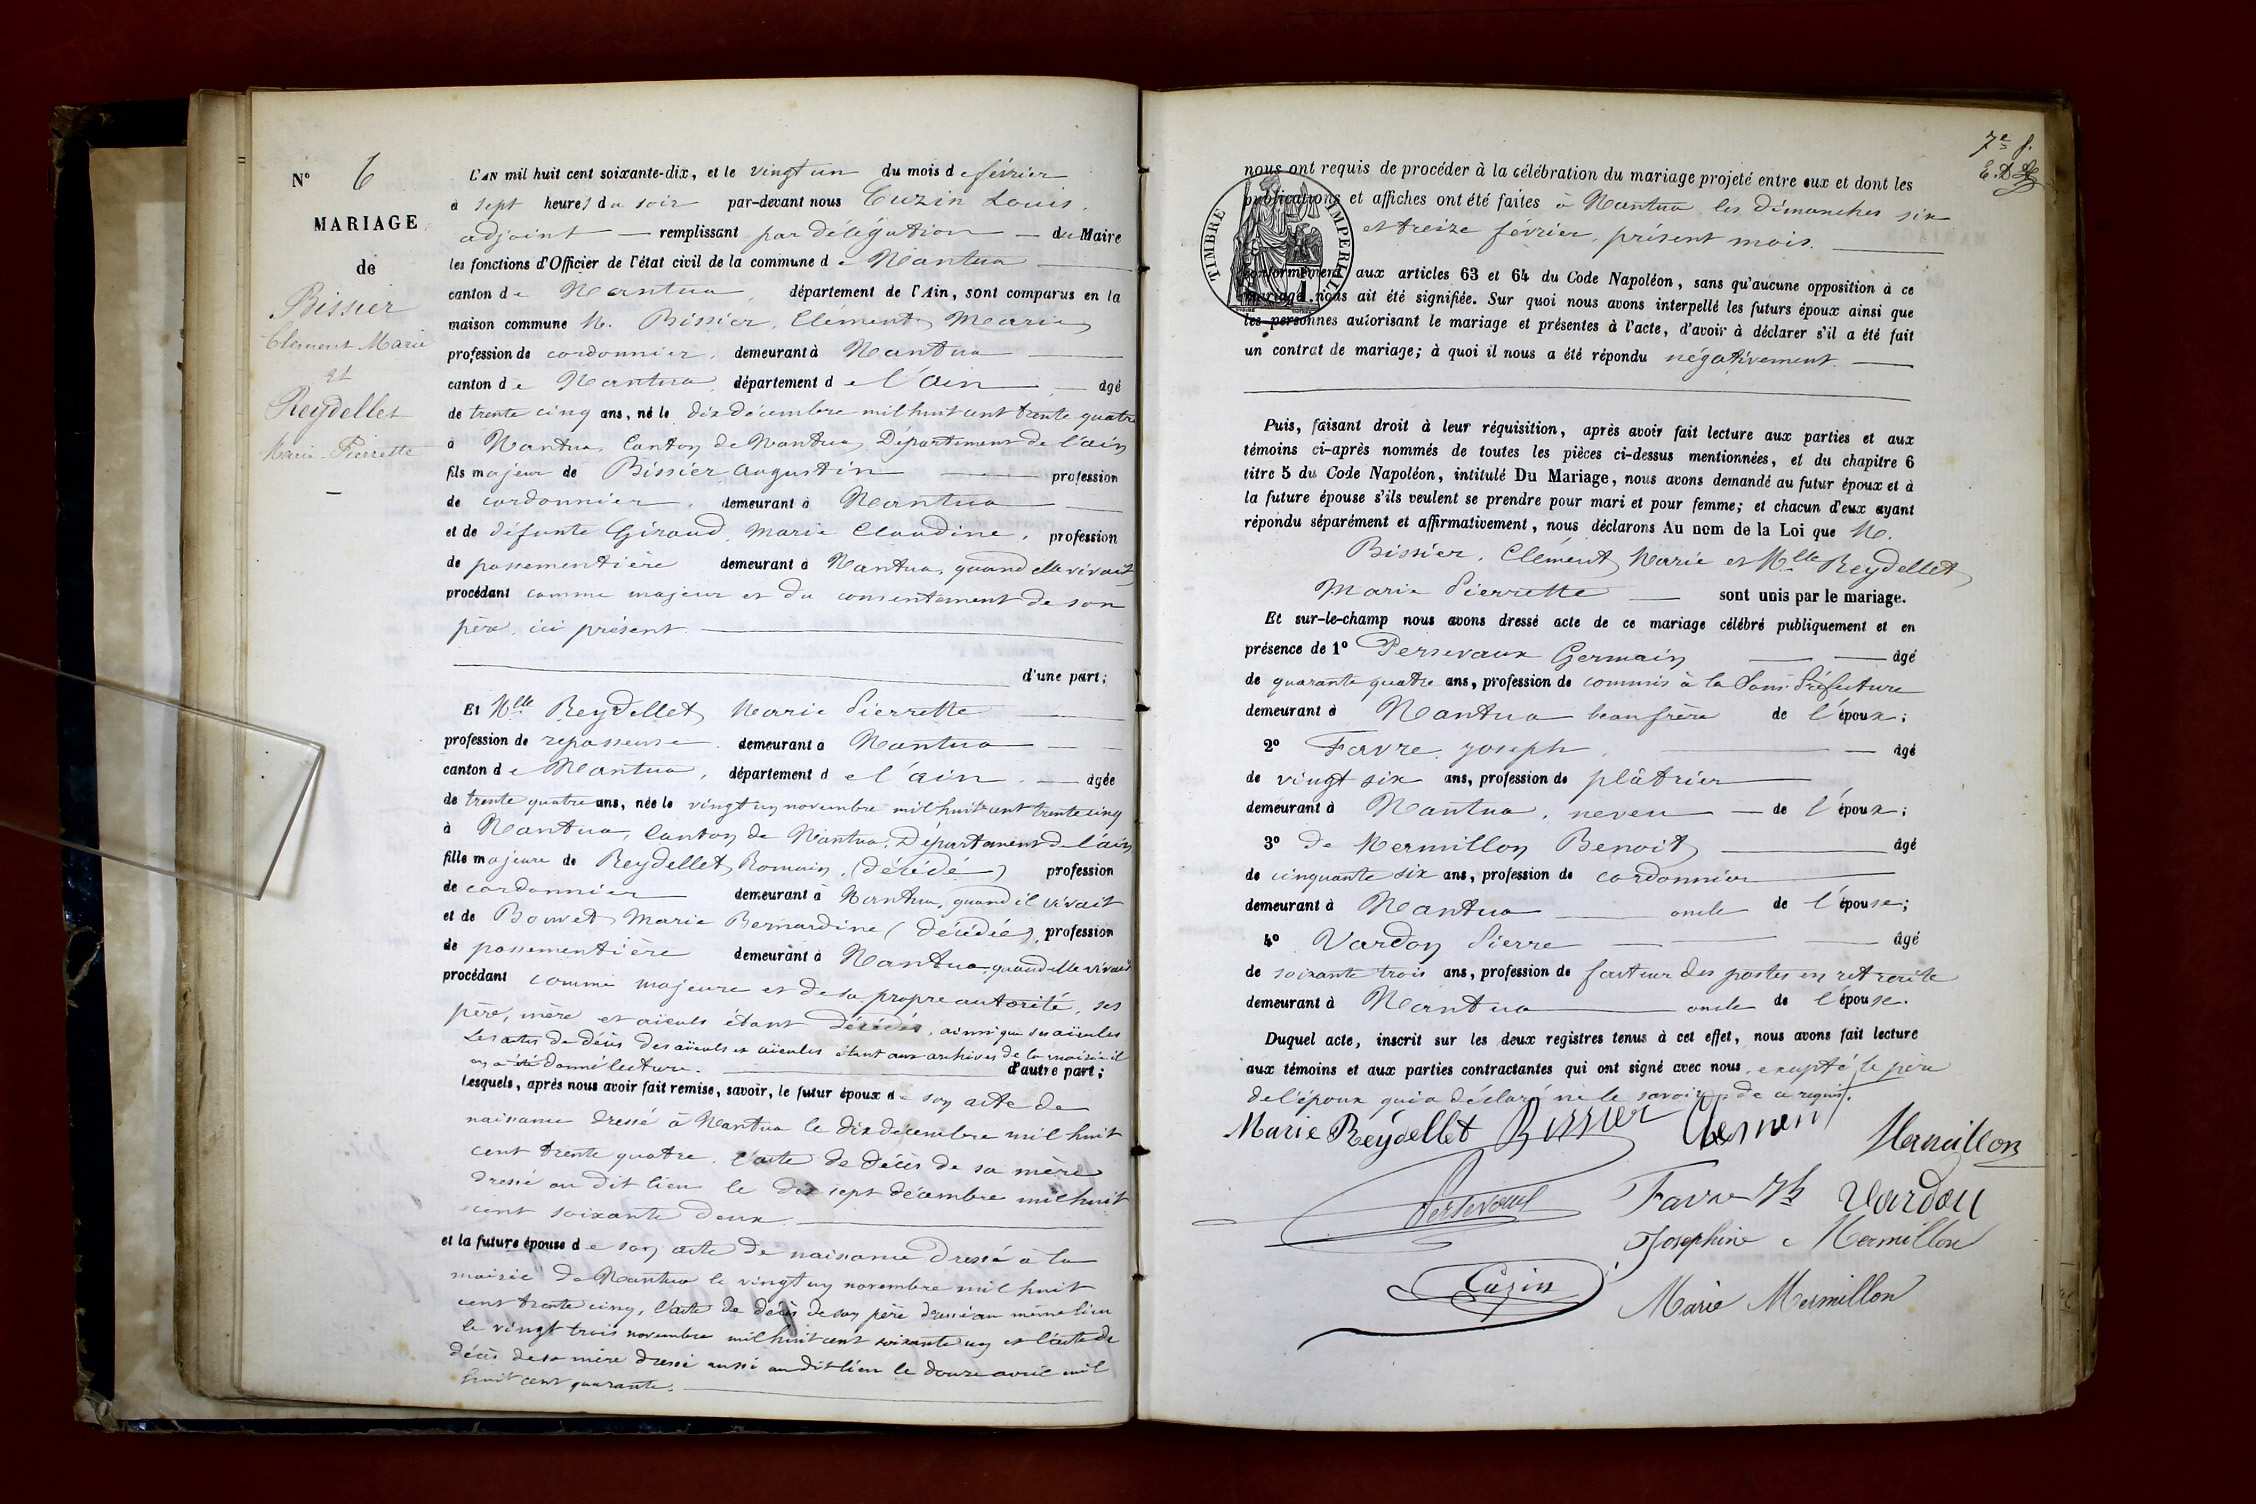 N° 6
MARIAGE
de
Bissier
Clement Marie
et
Reydellet
Marie Pierrette
L'AN mil huit cent soixante-dix, et le vingt un du mois de février
à sept heures du soir par-devant nous Cuzin Louis,
adjoint remplissant par délégation du Maire
les fonctions d'Officier de l'état civil de la commune de Nantua
canton de Nantua, département de l'Ain, sont comparus en la
maison commune M. Bissier, Clement Marie
profession de cordonnier, demeurant à Nantua
canton de Nantua, département de l'ain âgé
de trente cinq ans, né le dix décembre mil huit cent trente quatre
à Nantua, Canton de Nantua, Département de l'ain
fils majeur de Bissier Augustin profession
de cordonnier, demeurant à Nantua
et de défunte Giraud, Marie Claudine, profession
de passementière demeurant à Nantua, quand elle vivait
procédant comme majeur et du consentement de son
père, ici présent.
d'une part;
Et Mlle Reydellet Marie Pierrette
profession de repasseuse, demeurant à Nantua
canton de Nantua, département de l'ain âgée
de trente quatre ans, née le vingt un novembre mil huit cent trente cinq
à Nantua, Canton de Nantua, Département de l'ain
fille majeure de Reydellet Romain, (décédé) profession
de cordonnier demeurant à Nantua, quand il vivait
et de Bouvet Marie Bernardine (décédée), profession
de passementière demeurant à Nantua quand elle vivait
procédant comme majeure et de sa propre autorité, ses
père, mère et aïeuls étant décédés, ainsi que ses aïeules
Les actes de décès des aïeuls et aïeules étant aux archives de la mairie il
en a été donné lecture. d'autre part;
Lesquels, après nous avoir fait remise, savoir, le futur époux de son acte de
naissance dressé à Nantua le dix décembre mil huit
cent trente quatre, l'acte de décès de sa mère
dressé au dit lieu le dix sept décembre mil huit
cent soixante deux.
et la future épouse de son acte de naissance dressé à la
mairie de Nantua le vingt un novembre mil huit
cent trente cinq, l'acte de décès de son père dressé au même lieu
le vingt trois novembre mil huit cent soixante un et l'acte de
décès de sa mère dressé aussi au dit lieu le douze avril mil
huit cent quarante.
7e f.
nous ont requis de procéder à la célébration du mariage projeté entre eux et dont les
publications et affiches ont été faites à Nantua les dimanches six
et treize février, présent mois.
TIMBRE IMPERIAL
conformément aux articles 63 et 64 du Code Napoléon, sans qu'aucune opposition à ce
mariage nous ait été signifiée. Sur quoi nous avons interpellé les futurs époux ainsi que
les personnes autorisant le mariage et présentes à l'acte, d'avoir à déclarer s'il a été fait
un contrat de mariage; à quoi il nous a été répondu négativement.
Puis, faisant droit à leur réquisition, après avoir fait lecture aux parties et aux
témoins ci-après nommés de toutes les pièces ci-dessus mentionnées, et du chapitre 6
titre 5 du Code Napoléon, intitulé Du Mariage, nous avons demandé au futur époux et à
la future épouse s'ils veulent se prendre pour mari et pour femme; et chacun d'eux ayant
répondu séparément et affirmativement, nous déclarons Au nom de la Loi que M.
Bissier, Clément Marie et Mlle Reydellet
Marie Pierrette sont unis par le mariage.
Et sur-le-champ nous avons dressé acte de ce mariage célébré publiquement et en
présence de 1° Persevaux Germain âgé
de quarante quatre ans, profession de commis à la Sous-Préfecture
demeurant à Nantua beau frère de l'époux;
2° Favre, Joseph, âgé
de vingt six ans, profession de plâtrier
demeurant à Nantua, neveu de l'époux;
3° de Mermillon Benoit âgé
de cinquante six ans, profession de cordonnier
demeurant à Nantua oncle de l'épouse;
4° Vardon Pierre âgé
de soixante trois ans, profession de facteur des postes en retraite
demeurant à Nantua oncle de l'épouse.
Duquel acte, inscrit sur les deux registres tenus à cet effet, nous avons fait lecture
aux témoins et aux parties contractantes qui ont signé avec nous, excepté le père
de l'époux qui a déclaré ne le savoir, de ce requis.
Marie Reydellet Bissier Clement Mermillon
Persevaux Favre Jh Vardon
Josephine Mermillon
Cuzin Marie Mermillon